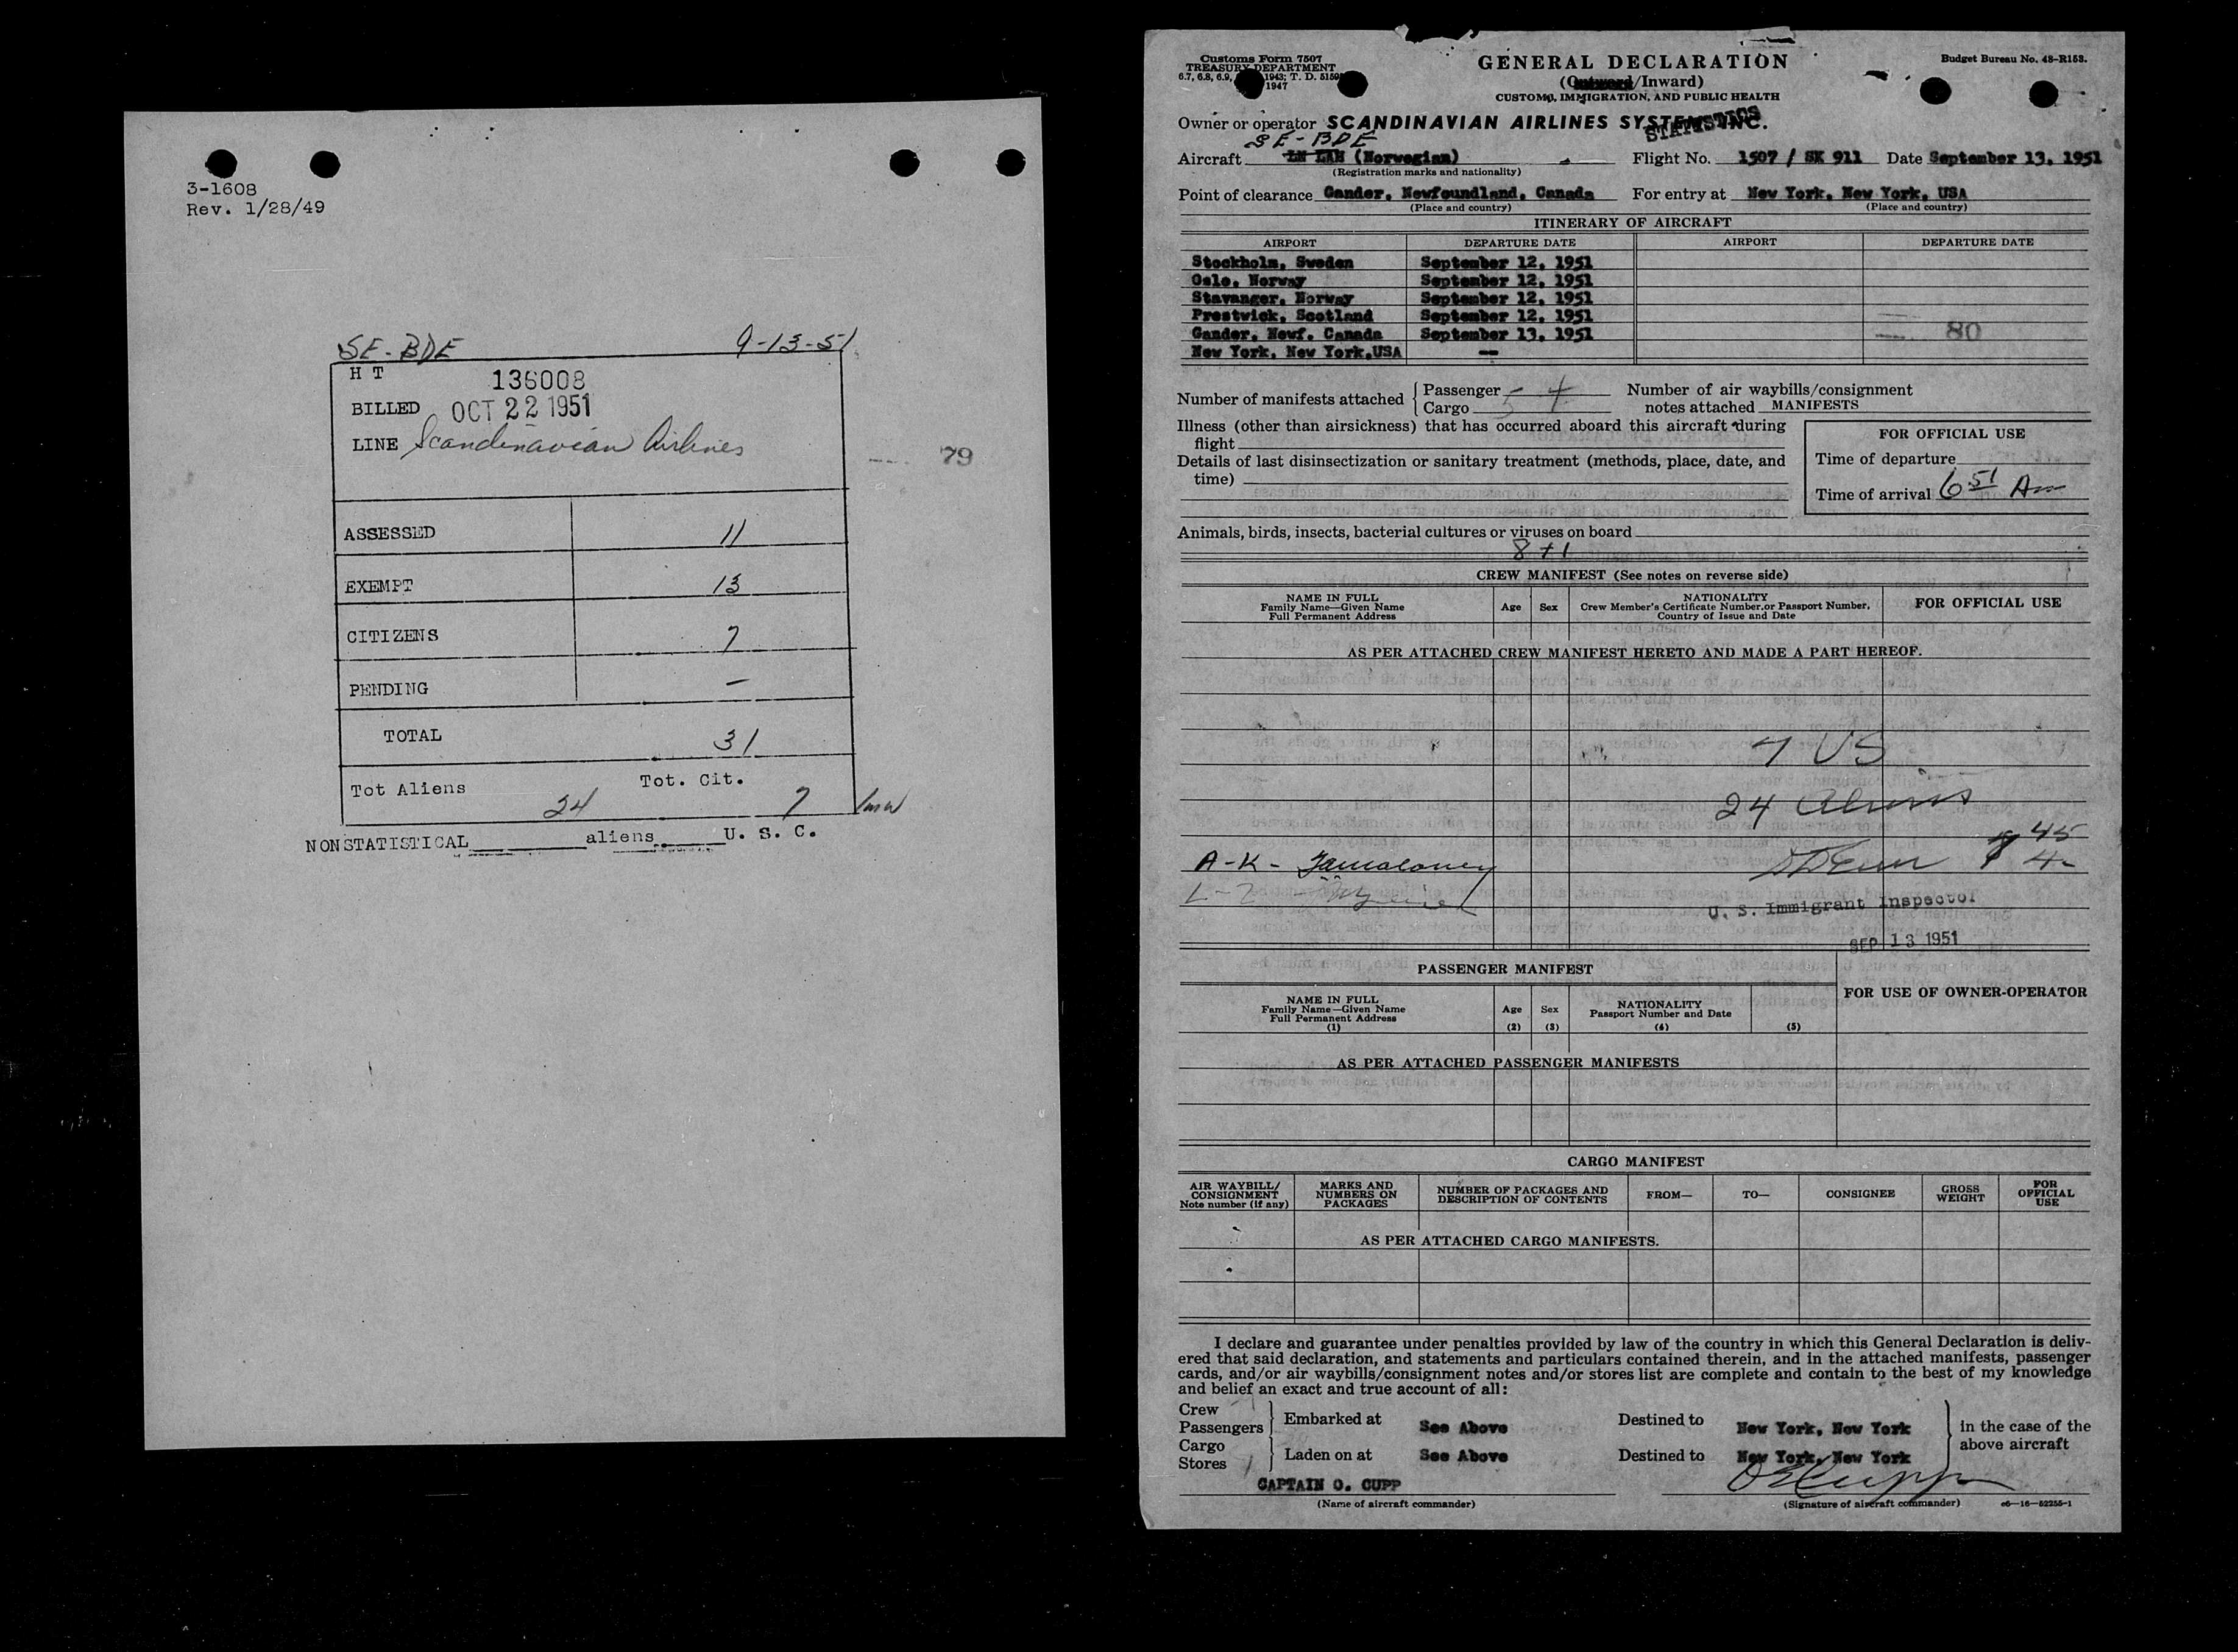 3-1608
Rev. 1/28/49
SE-BDE 9-13-51
H T 136008
BILLED OCT 22 1951
LINE Scandinavian Airlines
79
ASSESSED 11
EXEMPT 13
CITIZENS 7
PENDING -
TOTAL 31
Tot Aliens 24 Tot. Cit. 7
NONSTATISTICAL aliens U. S. C.
Customs Form 7507
TREASURY DEPARTMENT
6.7, 6.8, 6.9, 1943; T. D.
1947
GENERAL DECLARATION
(Outward/Inward)
CUSTOMS, IMMIGRATION, AND PUBLIC HEALTH
Budget Bureau No. 48-R153.
STATISTICS
Owner or operator SCANDINAVIAN AIRLINES SYSTEM, INC.
SE-BDE
Aircraft LN LAH (Norwegian) Flight No. 1507 / SK 911 Date September 13, 1951
(Registration marks and nationality)
Point of clearance Gander, Newfoundland, Canada For entry at New York, New York, USA
(Place and country) (Place and country)
ITINERARY OF AIRCRAFT
AIRPORT DEPARTURE DATE AIRPORT DEPARTURE DATE
Stockholm, Sweden September 12, 1951
Oslo, Norway September 12, 1951
Stavanger, Norway September 12, 1951
Prestwick, Scotland September 12, 1951
Gander, Newf. Canada September 13, 1951 80
New York, New York,USA --
Number of manifests attached { Passenger - 4 Number of air waybills/consignment
Cargo notes attached MANIFESTS
Illness (other than airsickness) that has occurred aboard this aircraft during
flight
FOR OFFICIAL USE
Details of last disinsectization or sanitary treatment (methods, place, date, and
time)
Time of departure
Time of arrival 6 51 Am
Animals, birds, insects, bacterial cultures or viruses on board
8 + 1
CREW MANIFEST (See notes on reverse side)
NAME IN FULL
Family Name—Given Name
Full Permanent Address
Age Sex
NATIONALITY
Crew Member's Certificate Number, or Passport Number,
Country of Issue and Date
FOR OFFICIAL USE
AS PER ATTACHED CREW MANIFEST HERETO AND MADE A PART HEREOF.
7 US
24 Aliens
A-K-
U. S. Immigrant Inspector
SEP 13 1951
PASSENGER MANIFEST
NAME IN FULL
Family Name—Given Name
Full Permanent Address
(1)
Age
(2)
Sex
(3)
NATIONALITY
Passport Number and Date
(4)
(5)
FOR USE OF OWNER-OPERATOR
AS PER ATTACHED PASSENGER MANIFESTS
CARGO MANIFEST
AIR WAYBILL/
CONSIGNMENT
Note number (if any)
MARKS AND
NUMBERS ON
PACKAGES
NUMBER OF PACKAGES AND
DESCRIPTION OF CONTENTS
FROM— TO— CONSIGNEE
GROSS
WEIGHT
FOR
OFFICIAL
USE
AS PER ATTACHED CARGO MANIFESTS.
I declare and guarantee under penalties provided by law of the country in which this General Declaration is deliv-
ered that said declaration, and statements and particulars contained therein, and in the attached manifests, passenger
cards, and/or air waybills/consignment notes and/or stores list are complete and contain to the best of my knowledge
and belief an exact and true account of all:
Crew
Passengers } Embarked at See Above Destined to New York, New York } in the case of the
Cargo above aircraft
Stores } Laden on at See Above Destined to New York, New York
CAPTAIN O. CUPP O Cupp
(Name of aircraft commander) (Signature of aircraft commander) c6—16—52255-1